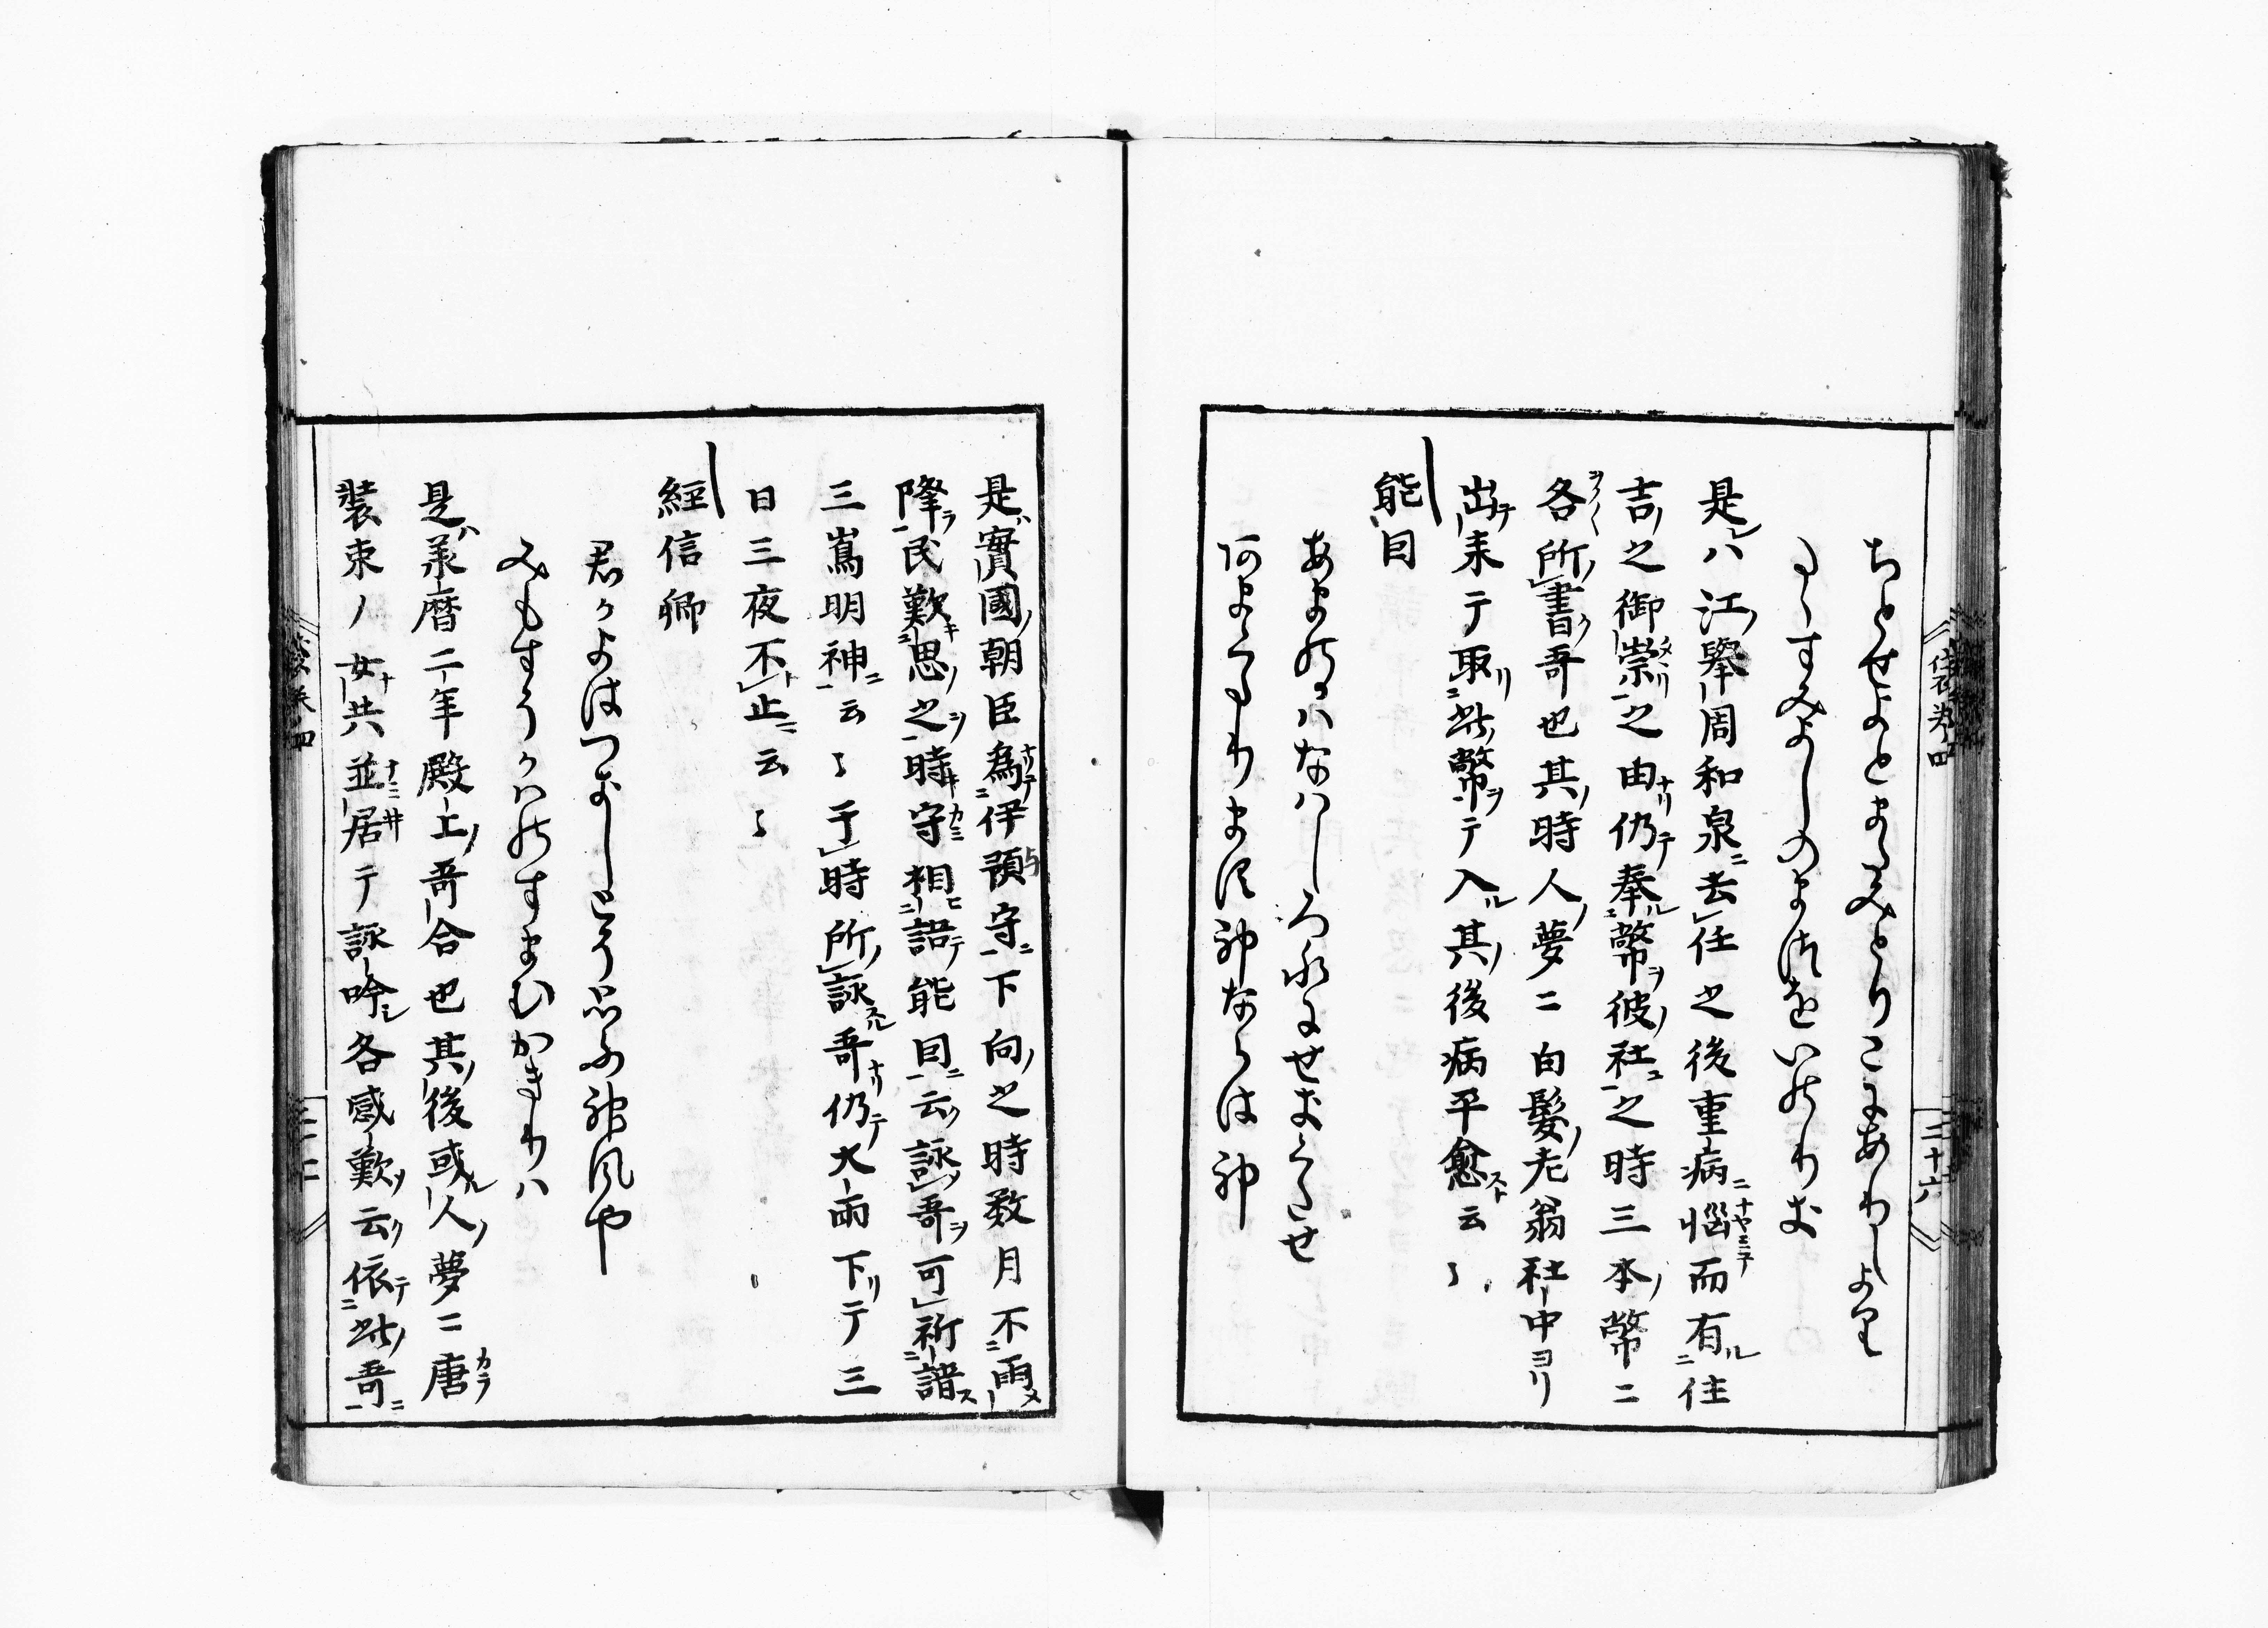 ちとせよとまたみとりこにありしより
たゝすみよしのまつをいのりき
是ハ江擧周和泉去任之後重病惱而有住
吉之御崇之由仍奉幣彼社之時三本幣ニ
各所書哥也其時人夢ニ白髮老翁社中ヨリ
出来テ取此幣テ入其後病平愈云〻
能因
あまのかハなハしろ水にせきくたせ
阿まくたります神ならは神
是實國朝臣為伊預守下向之時数月不雨
降民歎思之時守相語能因云詠哥可祈諳
三嶌明神云〻于時所詠哥仍大雨下テ三
日三夜不止云〻
經信卿
君かよはつきしとそ思ふ神風や
みもすそかハのすまむかきりハ
是承暦二年殿上哥合也其後或人夢ニ唐
装束ノ女共並居テ詠吟各感歎云依此哥
二十六